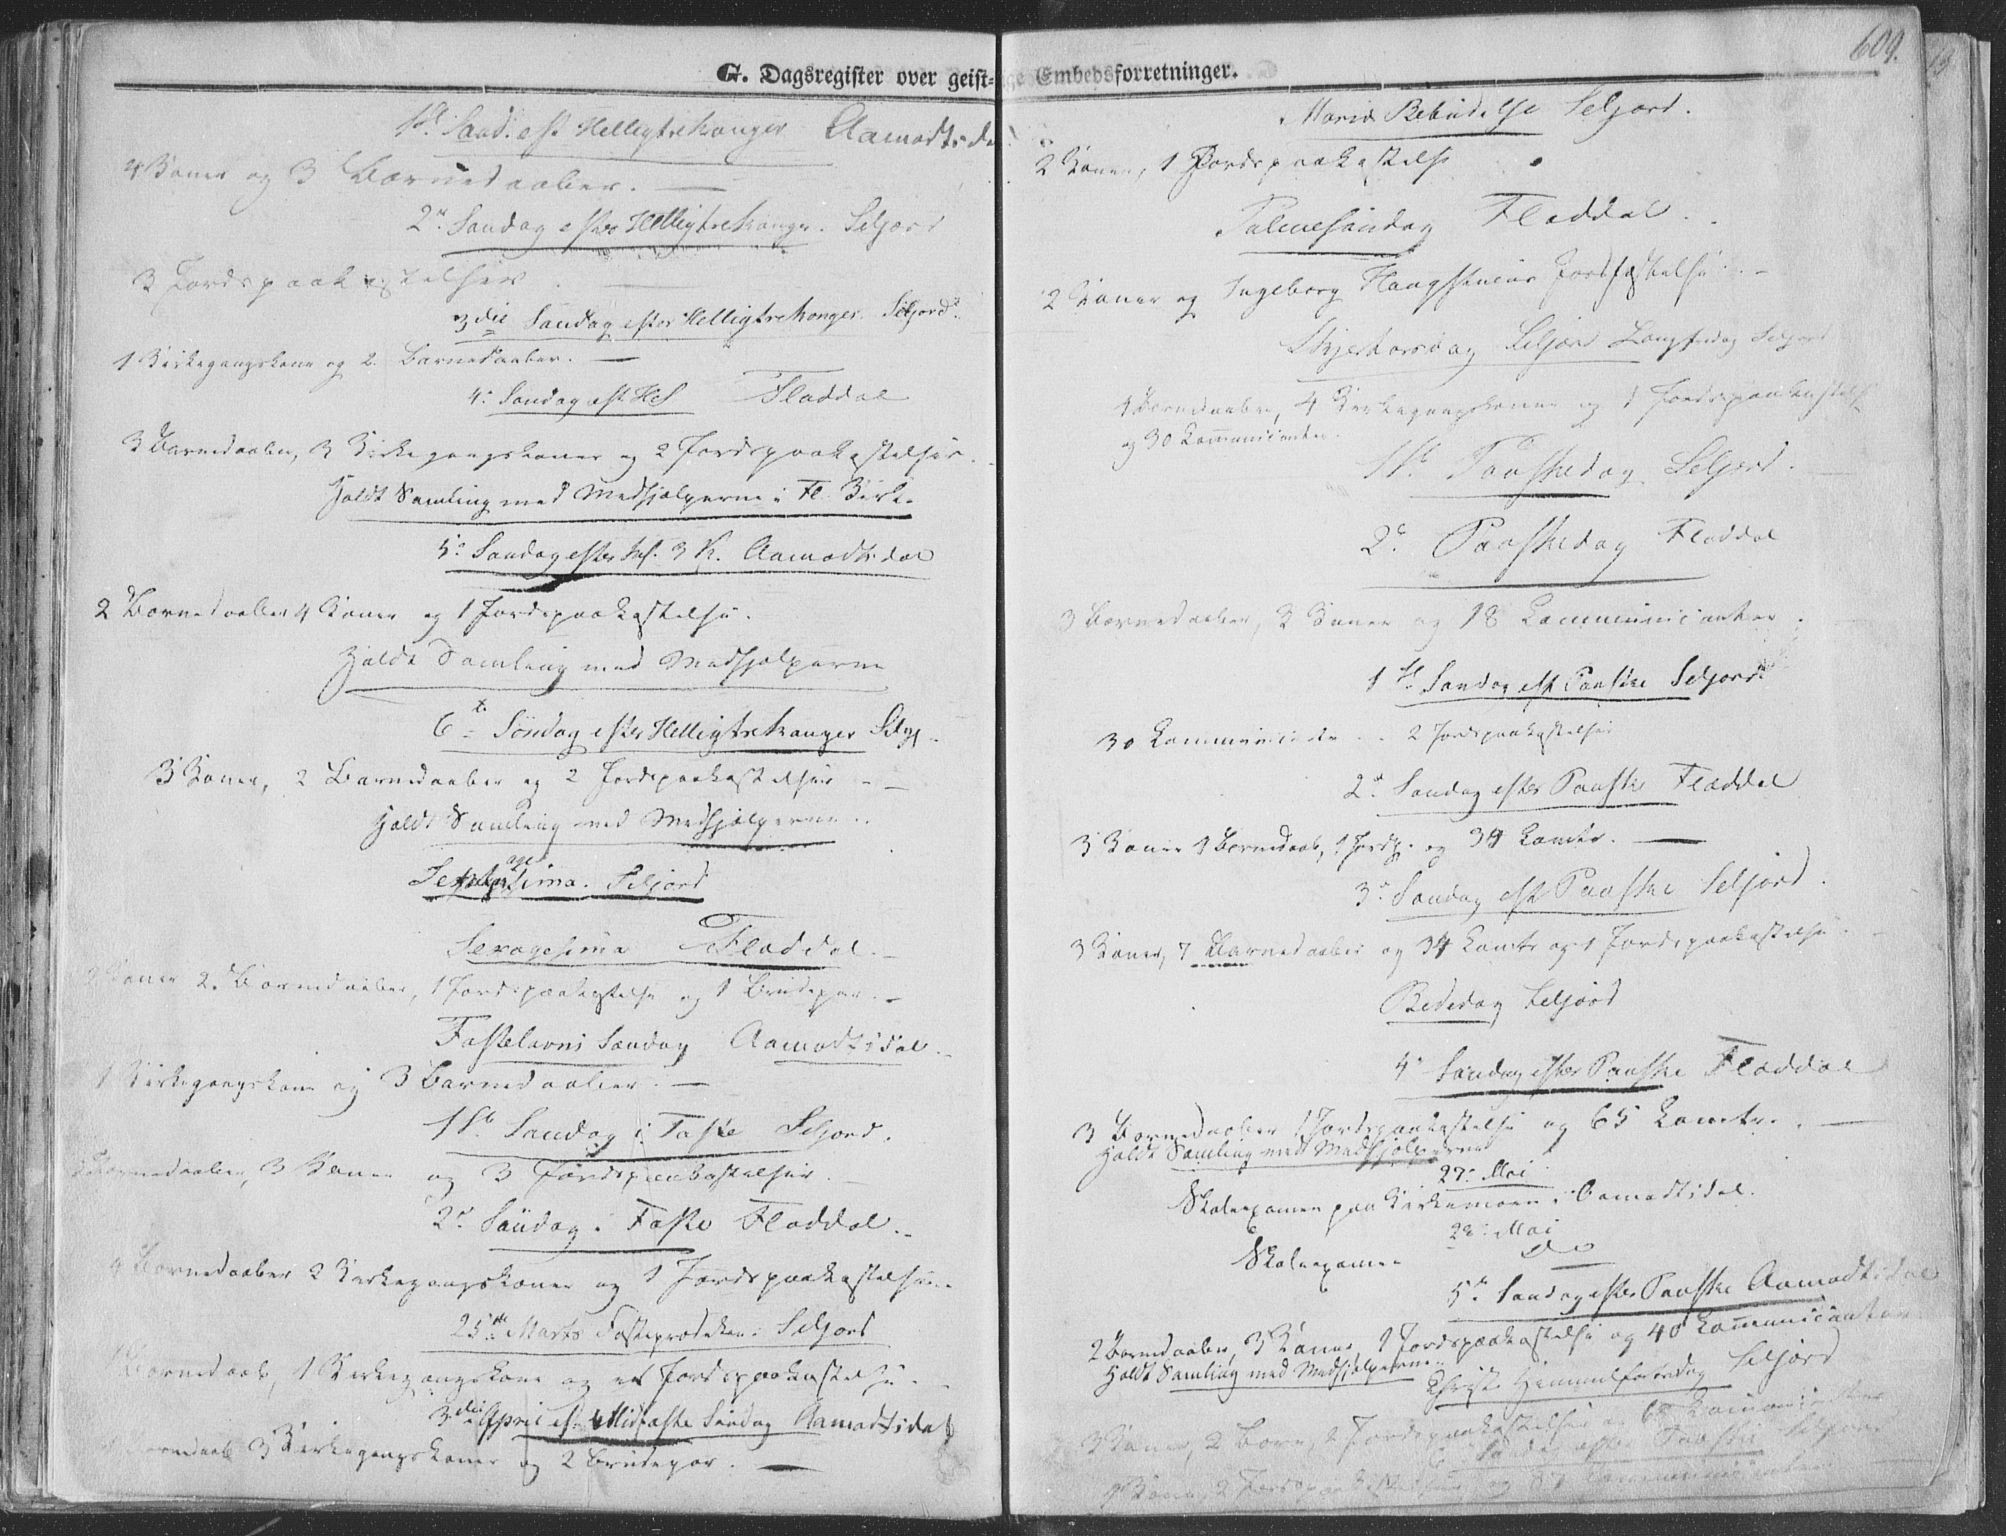 G. Dagsregister over geist-
1ste Sønd. eft Helligtrekonger Aamodtsdal
4 Koner og 3 Barnedaaber.
2n Søndag efter Helligtrekonger. Seljord
3 Jordspaakastelser
3die Søndag efter Helligtrekonger. Seljord.
1 Kirkegangskone og 2 Barnedaaber.
4e Søndag eft Hel Fladdal
3 Barnedaaber, 3 Kirkegangskoner og 2 Jordspaakastelser.
Holdt Samling med Medhjælperne i Fl. Kirke
5e Søndag efter Hel. 3 K. Aamodtsdal
2 Barnedaaber 4 Koner og 1 Jordspaakastelse.
Holdt Samling med Medhjælperne
6te Søndag efter Helligtrekonger Selj.
3 Koner, 2 Barnedaaber og 2 Jordspaakastelser
Holdt Samling med Medhjælperne
Septuagesima. Seljord
Sexagesima Fladdal.
Koner 2 Barnedaaber, 1 Jordspaakastelse og 1 Brudepar.
Fastelavns Søndag Aamodtsdal.
1 Kirkegangskone og 3 Barnedaaber.
1ste Søndag i Faste Seljord.
Barnedaaber, 3 Koner og 3 Jordspaakastelser.
2n Søndag i Faste Fladdal.
4 Barnedaaber 2 Kirkegangskoner og 1 Jordspaakastelse
25de Marts Fasteprædiken i Seljord
Barnedaab, 1 Kirkegangskone og en Jordspaakastelse.
3die April el. Midfaste Søndag Aamodtsdal
Barnedaab 3 Kirkegangskoner og 2 Brudepar.
609.
ge Embedsforretninger.
Mariæ Bebudelse Seljord.
2 Koner, 1 Jordspaakastelse
Palmesøndag Fladdal.
2 Koner og Ingeborg Haugsteins Jordfæstelse
Skjertorsdag Seljord Langfredag Seljord
4 Barnedaaber, 4 Kirkegangskoner og 1 Jordspaakastelse
og 30 Communicanter.
1ste Paaskedag Seljord.
2e Paaskedag Fladdal
3 Barnedaaber, 2 Koner og 18 Communicanter.
1ste Søndag eft Paaske Seljord
30 Communicanter 2 Jordspaakastelser
2n Søndag efter Paaske Fladdal
3 Koner 1 Barnedaab, 1 Jordp. og 34 Comtr.
3e Søndag eft Paaske Seljord.
3 Koner, 7 Barnedaaber og 34 Comtr og 1 Jordspaakastelse.
Bededag Seljord
4e Søndag efter Paaske Fladdal
3 Barnedaaber 1 Jordspaakastelse og 65 Comtr.
Holdt Samling med Medhjælperne
27e Mai
Skoleexamen paa Kirkemoen i Aamodtsdal.
28e Mai
Skoleexamen Do
5te Søndag efter Paaske Aamodtsdal
2 Barnedaaber, 3 Koner, 1 Jordspaakastelse og 40 Communicanter.
Holdt Samling med Medhjælperne.
Christi Himmelfartsdag Seljord
3 Koner, 2 Børn, 2 Jordspaakastelser Communicanter
6 Søndag efter Paaske Seljord
Koner, 2 Jordspaakastelser og Communicanter